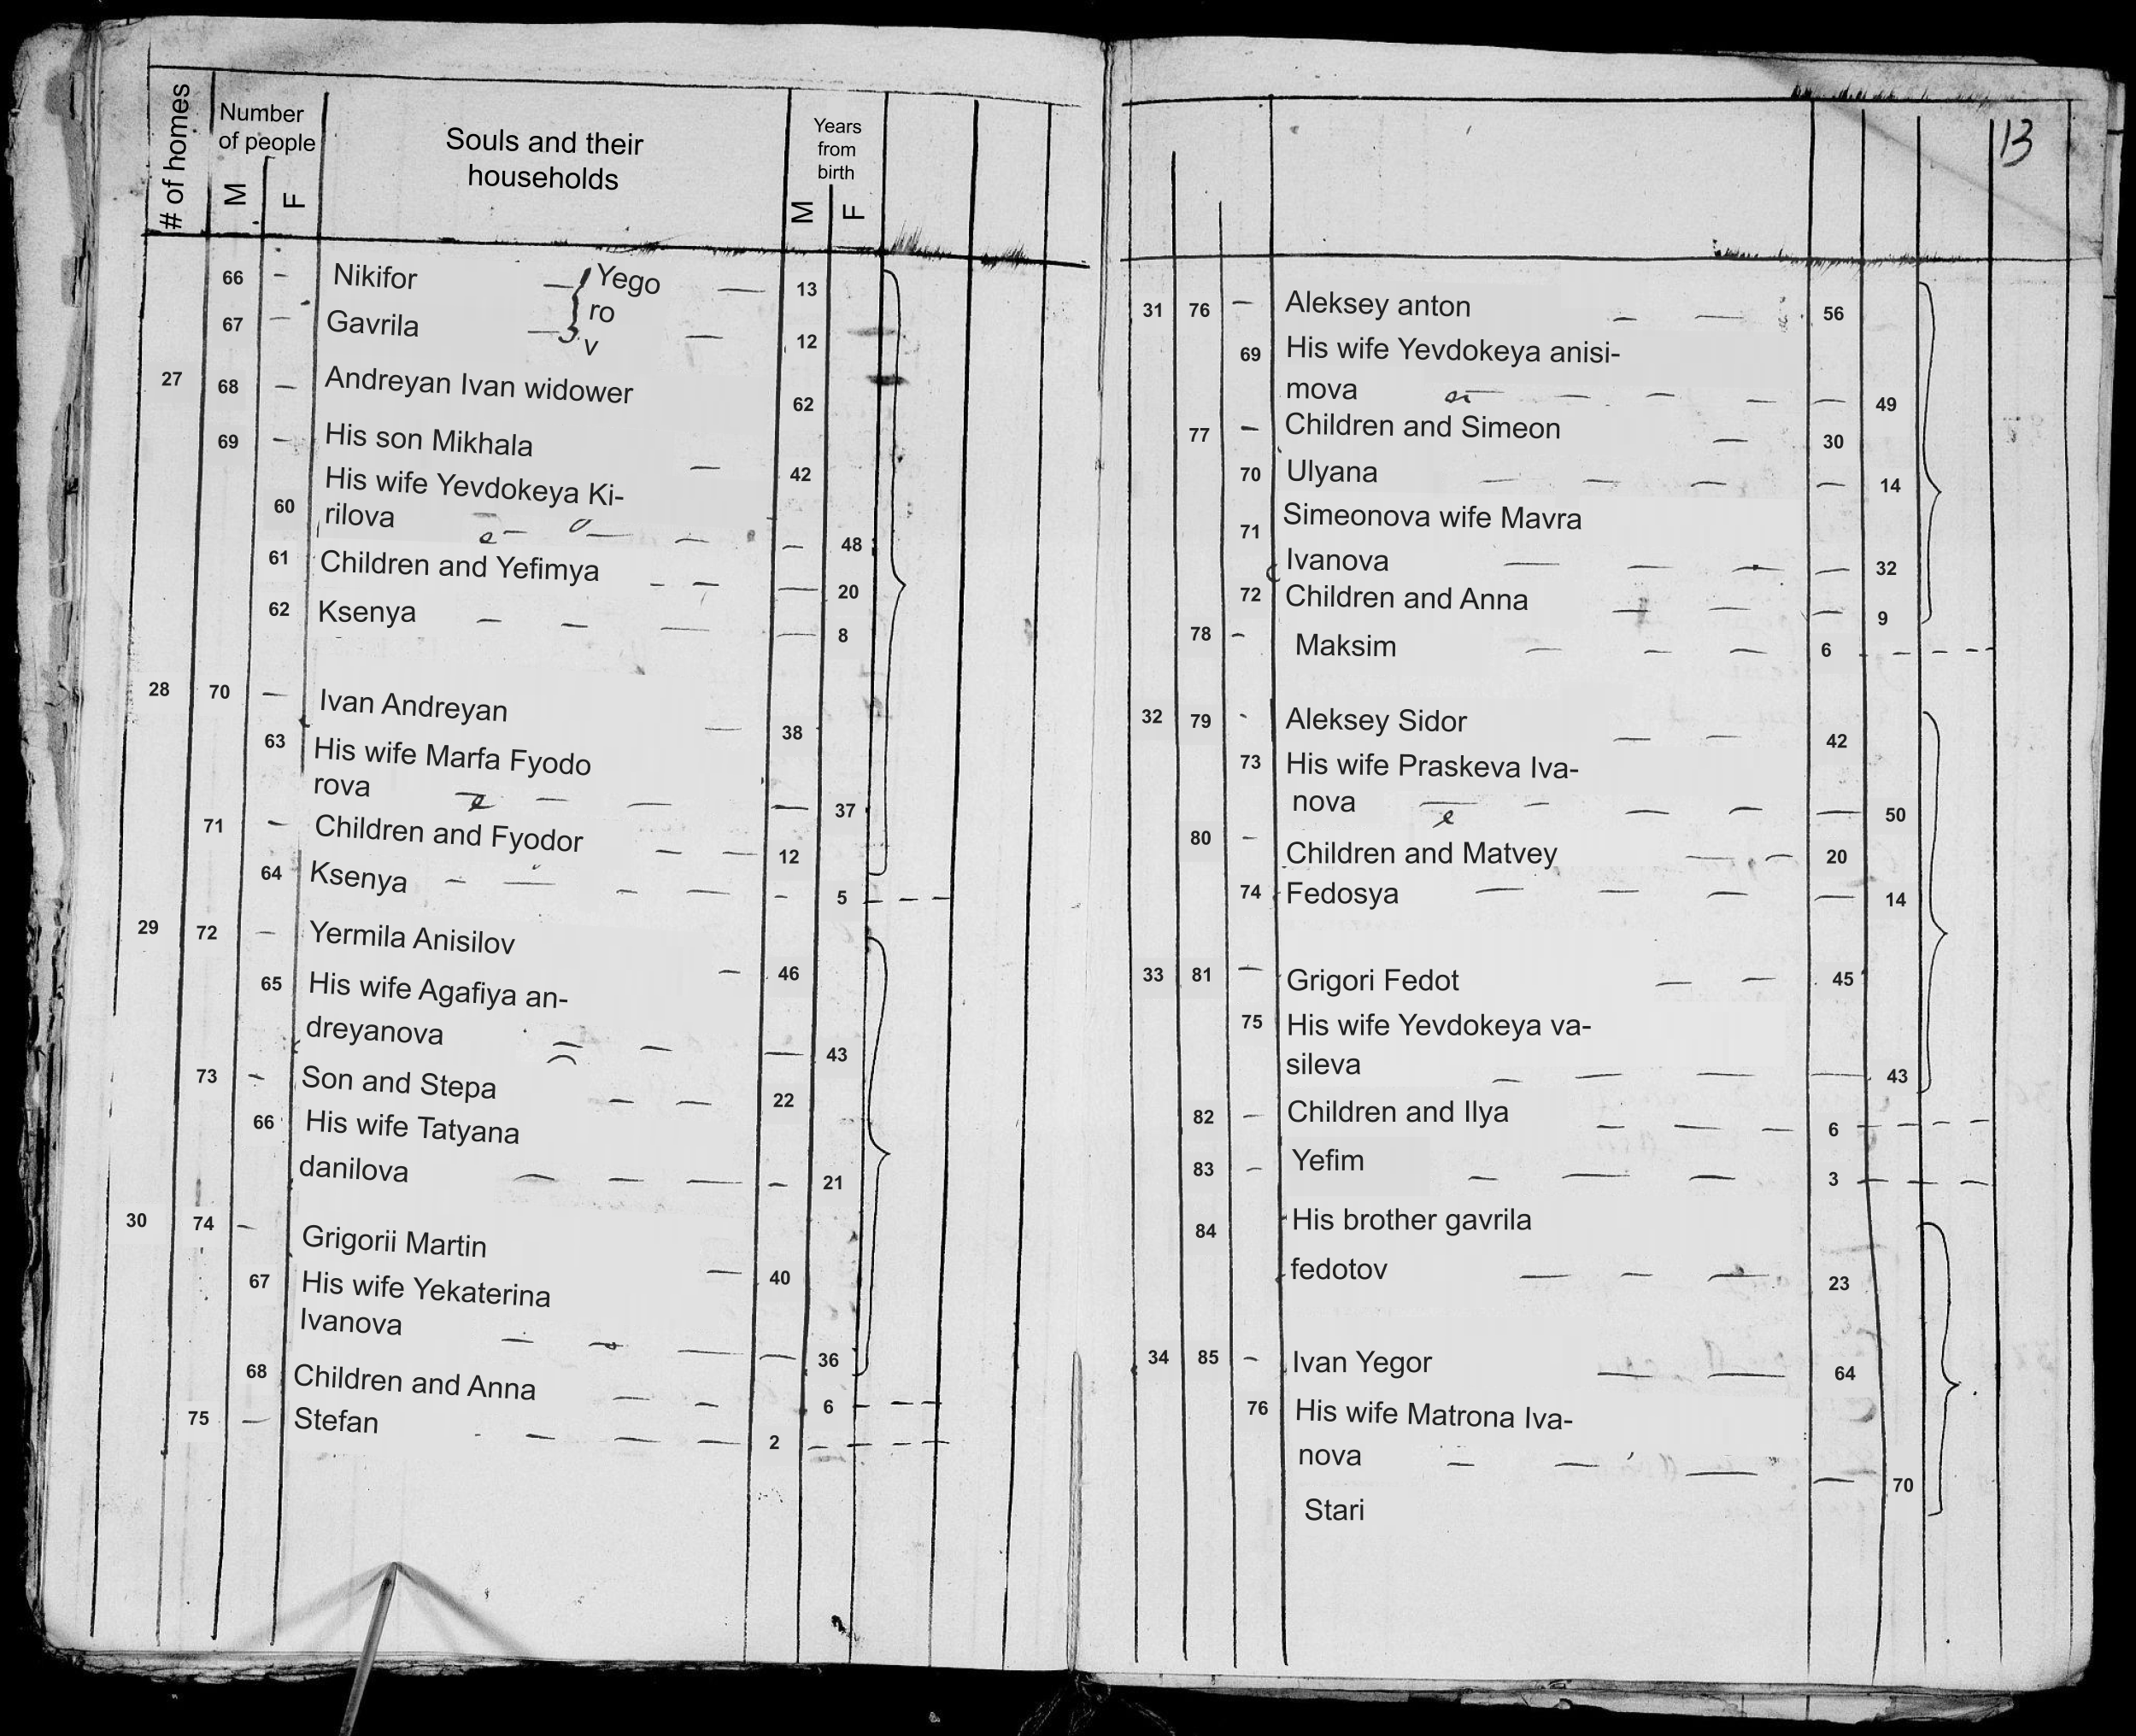 13
# of homes
Number
of people
M
F
Souls and their
households
Years
from
birth
M
F
66 — Nikifor — Yego — 13
ro
67 — Gavrila — v — 12
27 68 — Andreyan Ivan widower 62
69 — His son Mikhala — 42
His wife Yevdokeya Ki-
60 rilova — — — — 48
61 Children and Yefimya — — — 20
62 Ksenya — — — — 8
28 70 — Ivan Andreyan — 38
63 His wife Marfa Fyodo
rova — — — 37
71 — Children and Fyodor — — 12
64 Ksenya — — — — - 5 - - -
29 72 — Yermila Anisilov — 46
65 His wife Agafiya an-
dreyanova — — — 43
73 - Son and Stepa — — 22
66 His wife Tatyana
danilova — — — - 21
30 74 — Grigorii Martin — 40
67 His wife Yekaterina
Ivanova — — — — 36
68 Children and Anna — — 6 - - -
75 — Stefan — — — 2 - - - -
31 76 — Aleksey anton — — 56
69 His wife Yevdokeya anisi-
mova — — — — — 49
77 — Children and Simeon — 30
70 Ulyana — — — — 14
71 Simeonova wife Mavra
Ivanova — — — — 32
72 Children and Anna — — — 9
78 - Maksim — — — 6 - - - -
32 79 - Aleksey Sidor — — 42
73 His wife Praskeva Iva-
nova — — — — — 50
80 - Children and Matvey — — 20
74 Fedosya — — — — 14
33 81 — Grigori Fedot — — 45
75 His wife Yevdokeya va-
sileva — — — — 43
82 — Children and Ilya — — — 6 - - - -
83 - Yefim — — — 3 - - -
84 His brother gavrila
fedotov — — — 23
34 85 - Ivan Yegor — — 64
76 His wife Matrona Iva-
nova — — — — 70
Stari